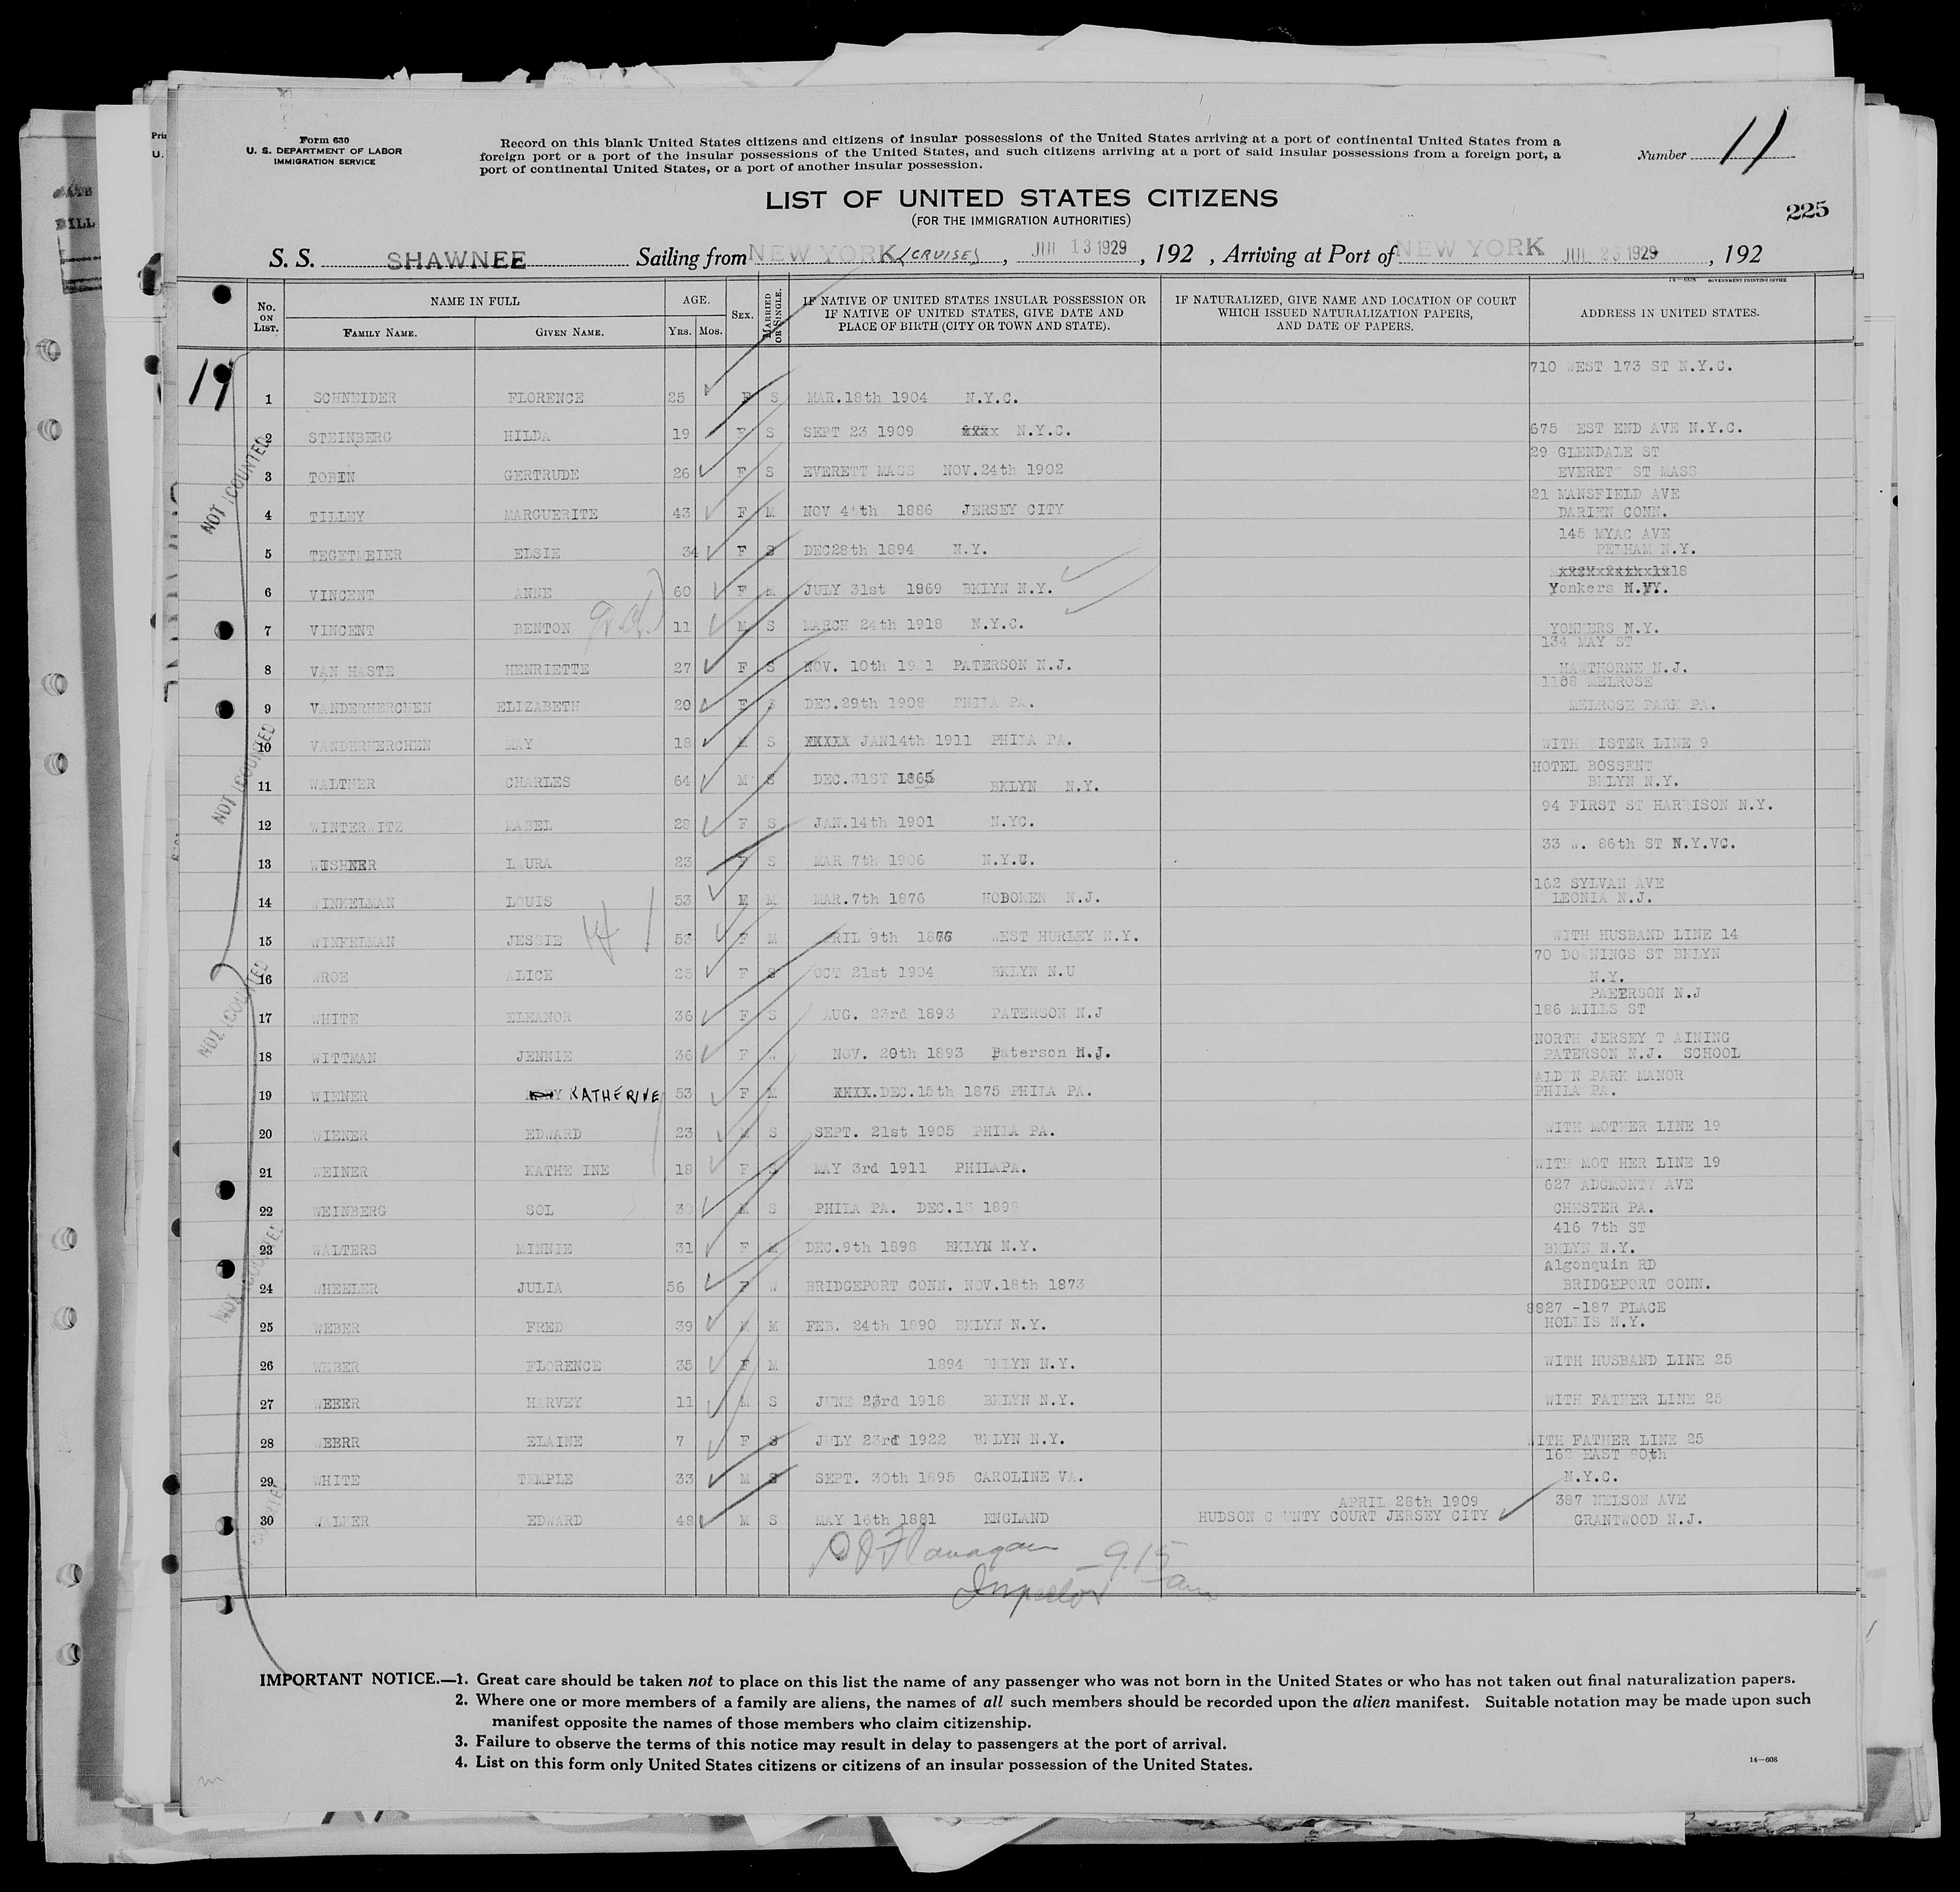 Form 630
U. S. DEPARTMENT OF LABOR
IMMIGRATION SERVICE
Record on this blank United States citizens and citizens of insular possessions of the United States arriving at a port of continental United States from a
foreign port or a port of the insular possessions of the United States, and such citizens arriving at a port of said insular possessions from a foreign port, a
port of continental United States, or a port of another insular possession.
Number 11
LIST OF UNITED STATES CITIZENS
(FOR THE IMMIGRATION AUTHORITIES)
225
S. S. SHAWNEE Sailing from NEW YORK (CRUISE), 13 1929, 192 , Arriving at Port of NEW YORK 1929, 192
No. ON LIST. NAME IN FULL AGE. SEX. MARRIED OR SINGLE. IF NATIVE OF UNITED STATES INSULAR POSSESSION OR IF NATIVE OF UNITED STATES, GIVE DATE AND PLACE OF BIRTH (CITY OR TOWN AND STATE). IF NATURALIZED, GIVE NAME AND LOCATION OF COURT WHICH ISSUED NATURALIZATION PAPERS, AND DATE OF PAPERS. ADDRESS IN UNITED STATES.
FAMILY NAME. GIVEN NAME. Yrs. Mos.
1 SCHNEIDER FLORENCE 25 F S MAR.18th 1904 N.Y.C. 710 WEST 173 ST N.Y.C.
2 STEINBERG HILDA 19 F S SEPT 23 1909 N.Y.C. 675 WEST END AVE N.Y.C.
3 TOBIN GERTRUDE 26 F S EVERETT MASS NOV.24th 1902 29 GLENDALE ST EVERETT ST MASS
4 TILLEY MARGUERITE 43 F M NOV 4th 1886 JERSEY CITY 21 MANSFIELD AVE DARIEN CONN.
5 TEGETMEIER ELSIE 34 F S DEC28th 1894 N.Y. 145 MYAC AVE PELHAM N.Y.
6 VINCENT ANNE 60 F M JULY 31st 1869 BKLYN N.Y. Yonkers N.Y.
7 VINCENT BENTON 11 M S MARCH 24th 1918 N.Y.C. YONKERS N.Y.
8 VAN HASTE HENRIETTE 27 F S NOV. 10th 1901 PATERSON N.J. 134 MAY ST HAWTHORNE N.J.
9 VANDERHERCHEN ELIZABETH 20 F S DEC.29th 1908 PHILA PA. 1108 MELROSE MELROSE PARK PA.
10 VANDERHERCHEN MAY 18 S JAN14th 1911 PHILA PA. WITH SISTER LINE 9
11 WALTHER CHARLES 64 M S DEC.31ST 1865 BKLYN N.Y. HOTEL BOSSENT BKLYN N.Y.
12 WINTERWITZ MABEL 28 F S JAN.14th 1901 N.YC. 94 FIRST ST HARRISON N.Y.
13 WISHNER LAURA 23 F S MAR 7th 1906 N.Y.C. 33 W. 86th ST N.Y.VC.
14 WINKELMAN LOUIS 53 M MAR.7th 1876 HOBOKEN N.J. 162 SYLVAN AVE LEONIA N.J.
15 WINKELMAN JESSIE 53 F M APRIL 9th 1876 WEST HURLEY N.Y. WITH HUSBAND LINE 14
16 WROE ALICE 25 F S OCT 21st 1904 BKLYN N.U 70 DOWNINGS ST BKLYN N.Y.
17 WHITE ELEANOR 36 F S AUG. 23rd 1893 PATERSON N.J PATERSON N.J 186 MILLS ST
18 WITTMAN JENNIE 36 F W NOV. 20th 1893 Paterson N.J. NORTH JERSEY T AINING PATERSON N.J. SCHOOL
19 WIENER KATHERINE 53 F M DEC.15th 1875 PHILA PA. ALDEN PARK MANOR PHILA PA.
20 WIENER EDWARD 23 M S SEPT. 21st 1905 PHILA PA. WITH MOTHER LINE 19
21 WEINER KATHE INE 18 F S MAY 3rd 1911 PHILAPA. WITH MOT HER LINE 19
22 WEINBERG SOL 30 M S PHILA PA. DEC.13 1898 627 ADGMONTV AVE CHESTER PA.
23 WALTERS MINNIE 31 F M DEC.9th 1898 BKLYN N.Y. 416 7th ST BKLYN N.Y.
24 WHEELER JULIA 56 F W BRIDGEPORT CONN. NOV.18th 1873 Algonquin RD BRIDGEPORT CONN.
25 WEBER FRED 39 M M FEB. 24th 1890 BKLYN N.Y. 8827 -187 PLACE HOLLIS N.Y.
26 WEBER FLORENCE 35 F M 1894 BKLYN N.Y. WITH HUSBAND LINE 25
27 WEBER HARVEY 11 M S JUNE 23rd 1918 BKLYN N.Y. WITH FATHER LINE 25
28 WEBRR ELAINE 7 F S JULY 23rd 1922 BKLYN N.Y. WITH FATHER LINE 25
29 WHITE TEMPLE 33 M S SEPT. 30th 1895 CAROLINE VA. 168 EAST 80th N.Y.C.
30 WALKER EDWARD 48 M S MAY 16th 1881 ENGLAND APRIL 28th 1909 HUDSON COUNTY COURT JERSEY CITY 387 NELSON AVE GRANTWOOD N.J.
NOT COUNTED
NOT COUNTED
NOT COUNTED
NOT COUNTED
Flanagan
Inspector 9.15 am
IMPORTANT NOTICE.—1. Great care should be taken not to place on this list the name of any passenger who was not born in the United States or who has not taken out final naturalization papers.
2. Where one or more members of a family are aliens, the names of all such members should be recorded upon the alien manifest. Suitable notation may be made upon such
manifest opposite the names of those members who claim citizenship.
3. Failure to observe the terms of this notice may result in delay to passengers at the port of arrival.
4. List on this form only United States citizens or citizens of an insular possession of the United States.
14—608